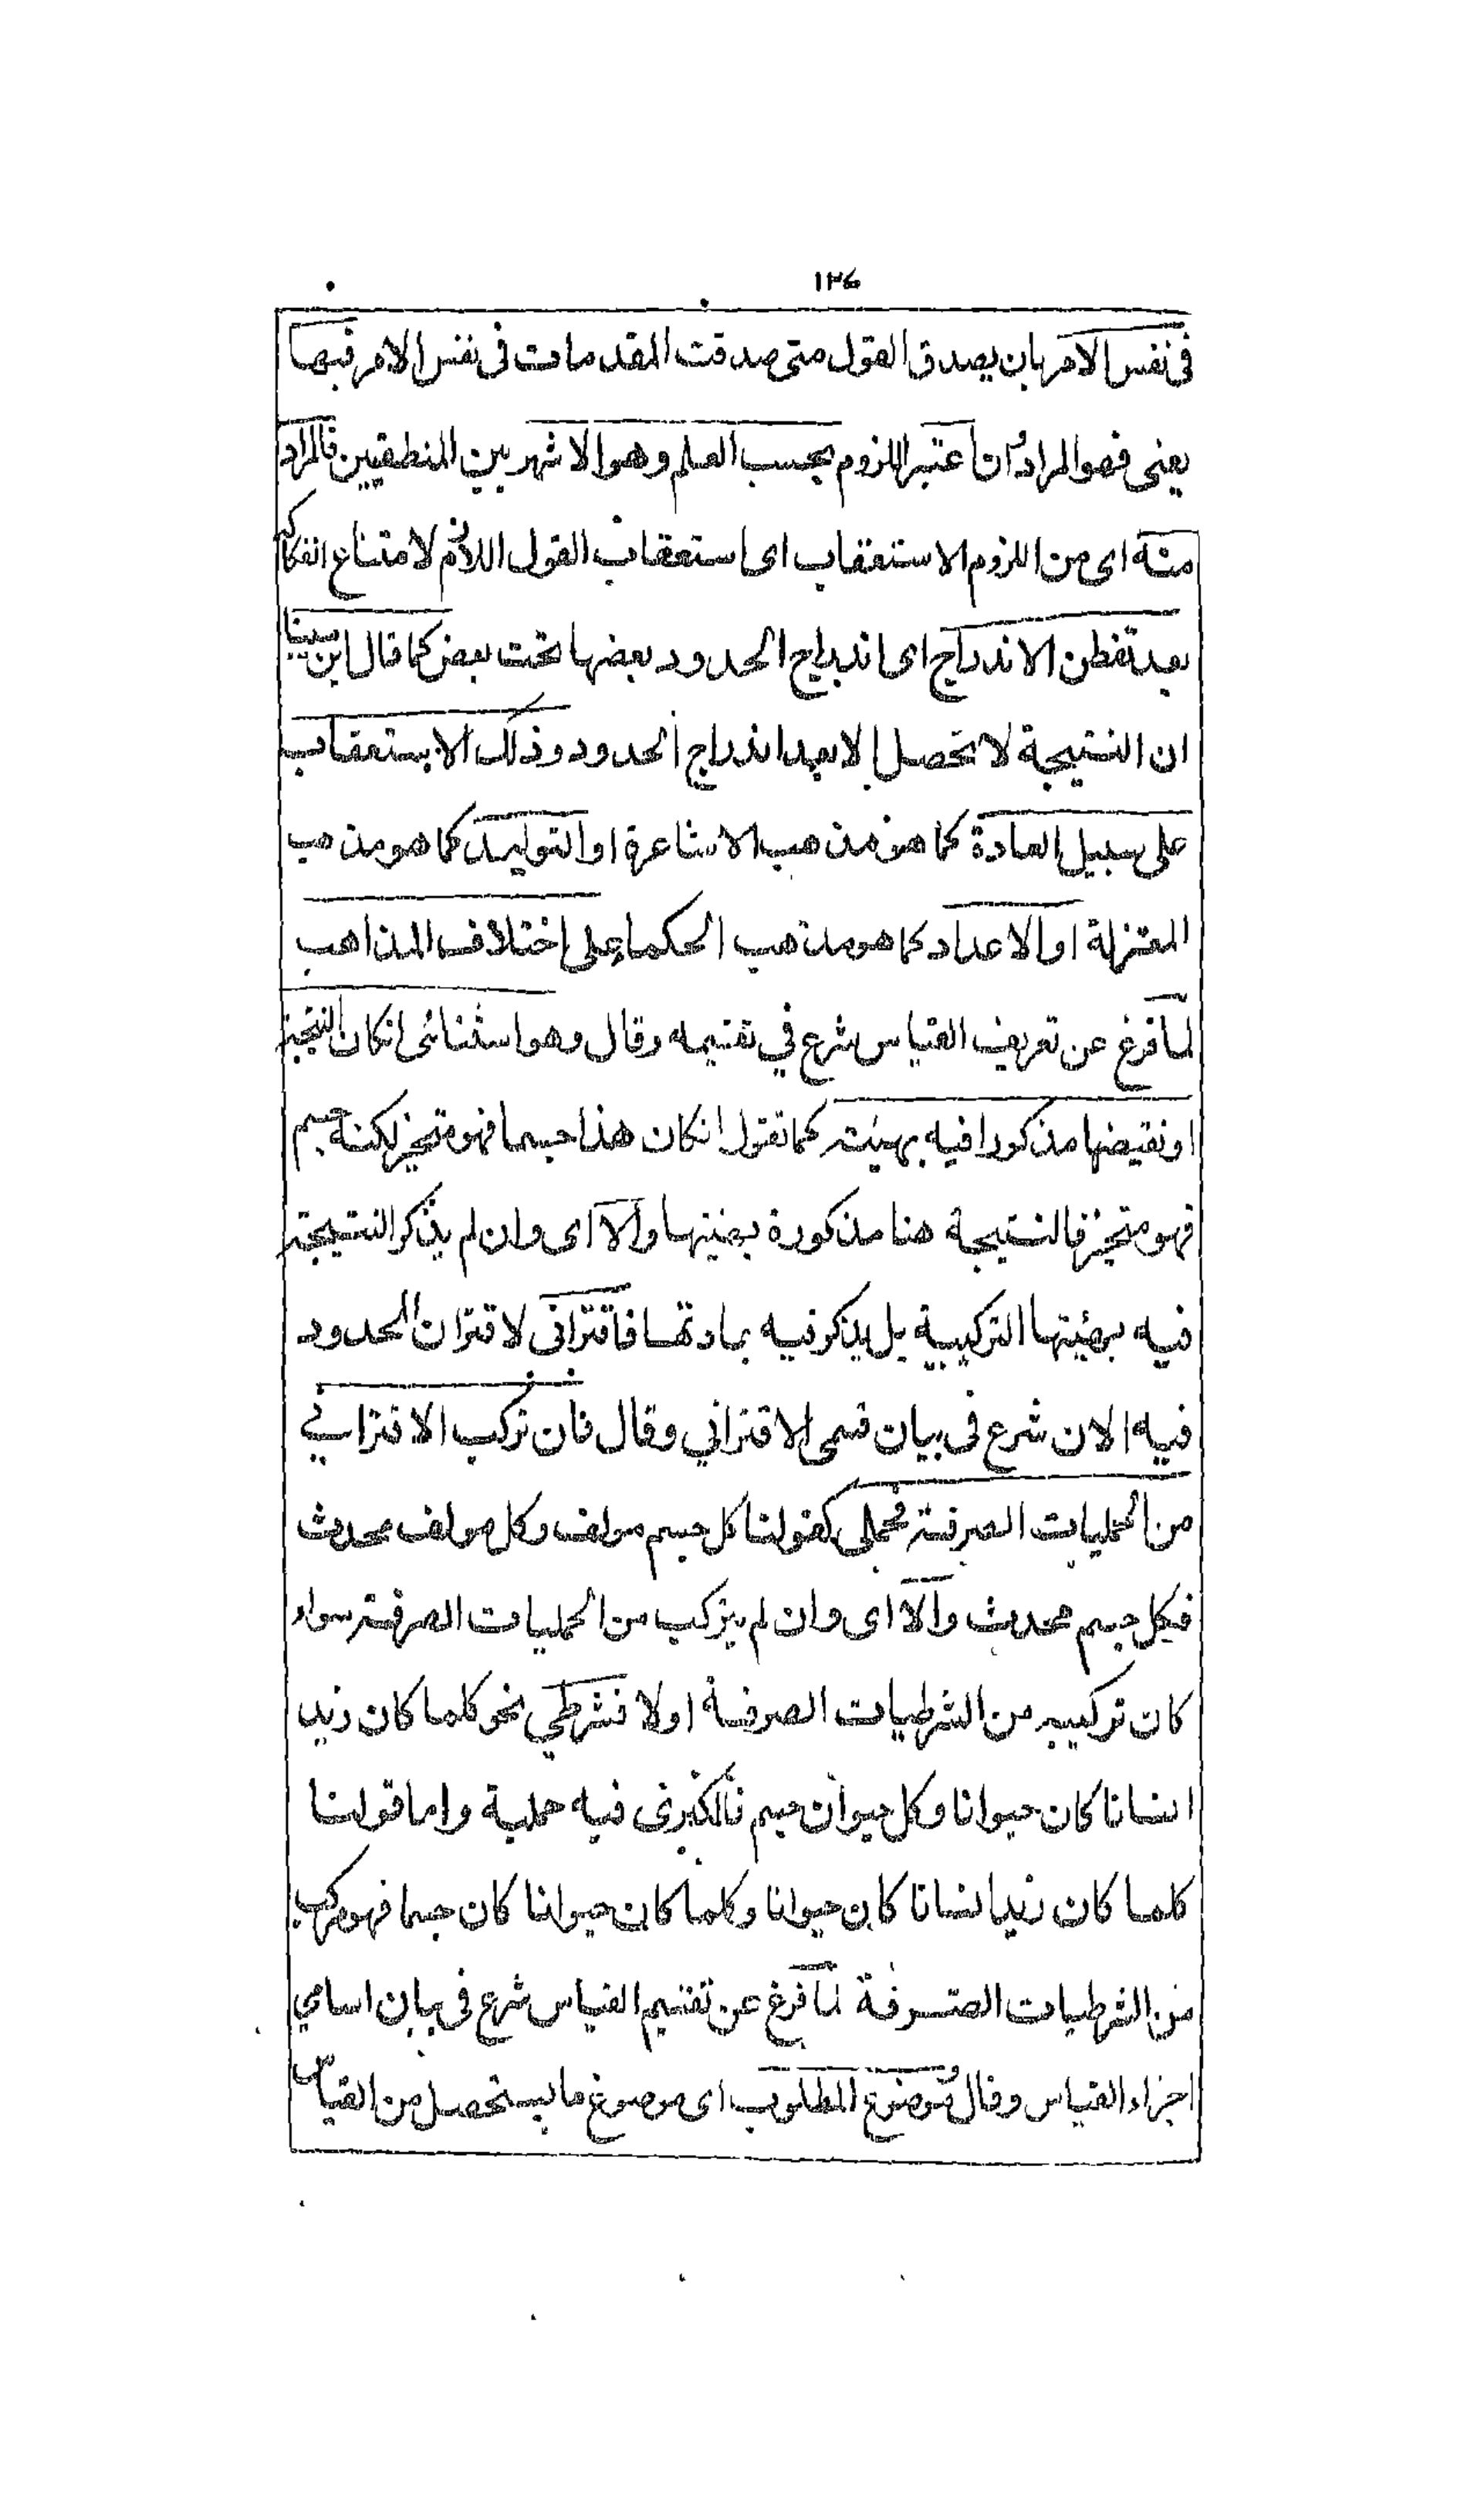 ١٢٤
فى نفس الامر بان يصدق القول متى صدقت المقدمات فى نفس الامر فبها
يعنى فهو المراد ان اعتبر اللزوم بحسب العلم وهو الاشهر بين المنطقيين فالمراد
منه اى من اللزوم الاستعقاب اى استعقاب القول اللازم لامتناع انفكاكه
بعد تفطن الاندراج اى اندراج الحدود بعضها تحت بعض كما قال ابن سينا
ان النتيجة لا تحصل الا بعد اندراج الحدود وذلك الاستعقاب
على سبيل العادة كما هو مذهب الاشاعرة او التوليد كما هو مذهب
المعتزلة او الاعداد كما هو مذهب الحكماء على اختلاف المذاهب
لما فرغ عن تعريف القياس شرع في تقسيمه وقال وهو استثنائى انكان النتيجة
او نقيضها مذكورا فيه بهيئته كما تقول انكان هذا جسما فهو متحيز لكنه جسم
فهو متحيز فالنتيجة هنا مذكورة بهيئتها والا اى وان لم يذكر النتيجة
فيه بهيئتها التركيبية بل يذكر فيه بمادتها فاقترانى لاقتران الحدود
فيه الان شرع فى بيان قسمى الاقتراني وقال فان تركب الاقتراني
من الحمليات الصرفة فحملى كقولنا كل جسم مولف وكل مولف محدث
فكل جسم محدث والا اى وان لم يتركب من الحمليات الصرفة سواء
كان تركيبه من الشرطيات الصرفة اولا فشرطي نحو كلما كان زيد
انسانا كان حيوانا وكل حيوان جسم فالكبرى فيه حملية واما قولنا
كلما كان زيد انسانا كان حيوانا وكلما كان حيوانا كان جسما فهو مركب
من الشرطيات الصرفة لما فرغ عن تقسيم القياس شرع فى بيان اسامي
اجزاء القياس وقال موضوع المطلوب اى موضوع ما يستحصل من القياس